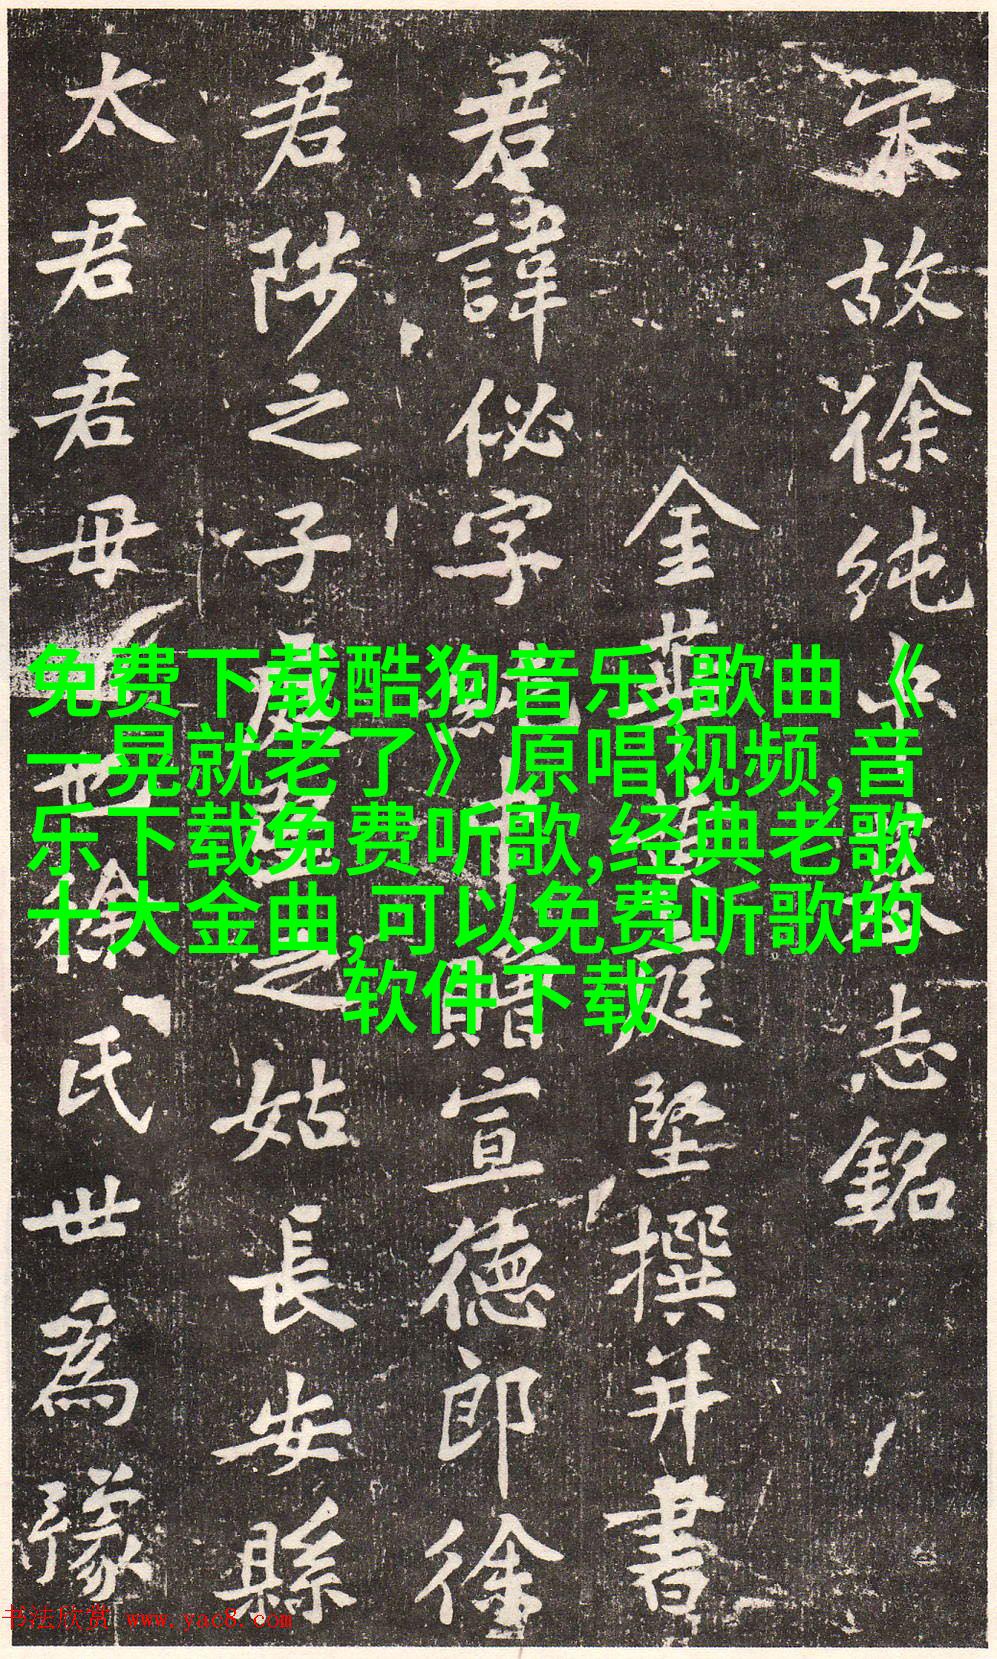 宋故徐纯中墓志銘
金華黃庭堅撰并書
君諱佖字
宣德郎徐
君陟之子
之姑長安縣
太君君母
徐氏世為豫
免费下载酷狗音乐,歌曲《
一晃就老了》原唱视频,音
乐下载免费听歌,经典老歌
十大金曲,可以免费听歌的
软件下载
书法欣赏 www.yac8.com